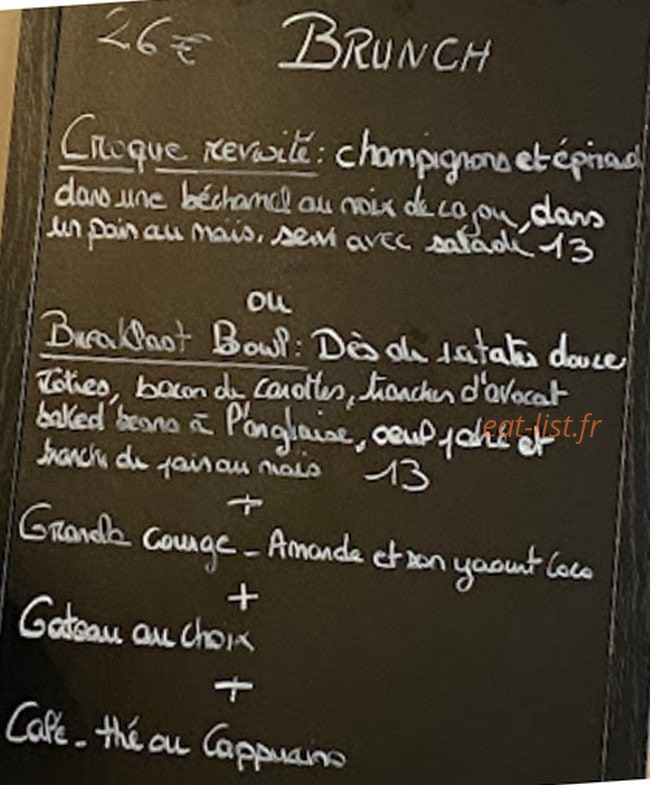 26€ BRUNCH
Croque revisité : champignons et épinad
dans une béchamel au noix de cajou, dans
un pain au maïs, servi avec salade 13
ou
Breakfast Bowl : Dès de patates douce
rôties, bacon de carottes, tranches d'avocat
baked beans à l'anglaise, oeuf poché et
eat-list.fr
tranche de pain au maïs 13
+
Granola Courge - Amande et son yaourt Coco
+
Gateau au choix
+
Café - thé ou Cappuccino